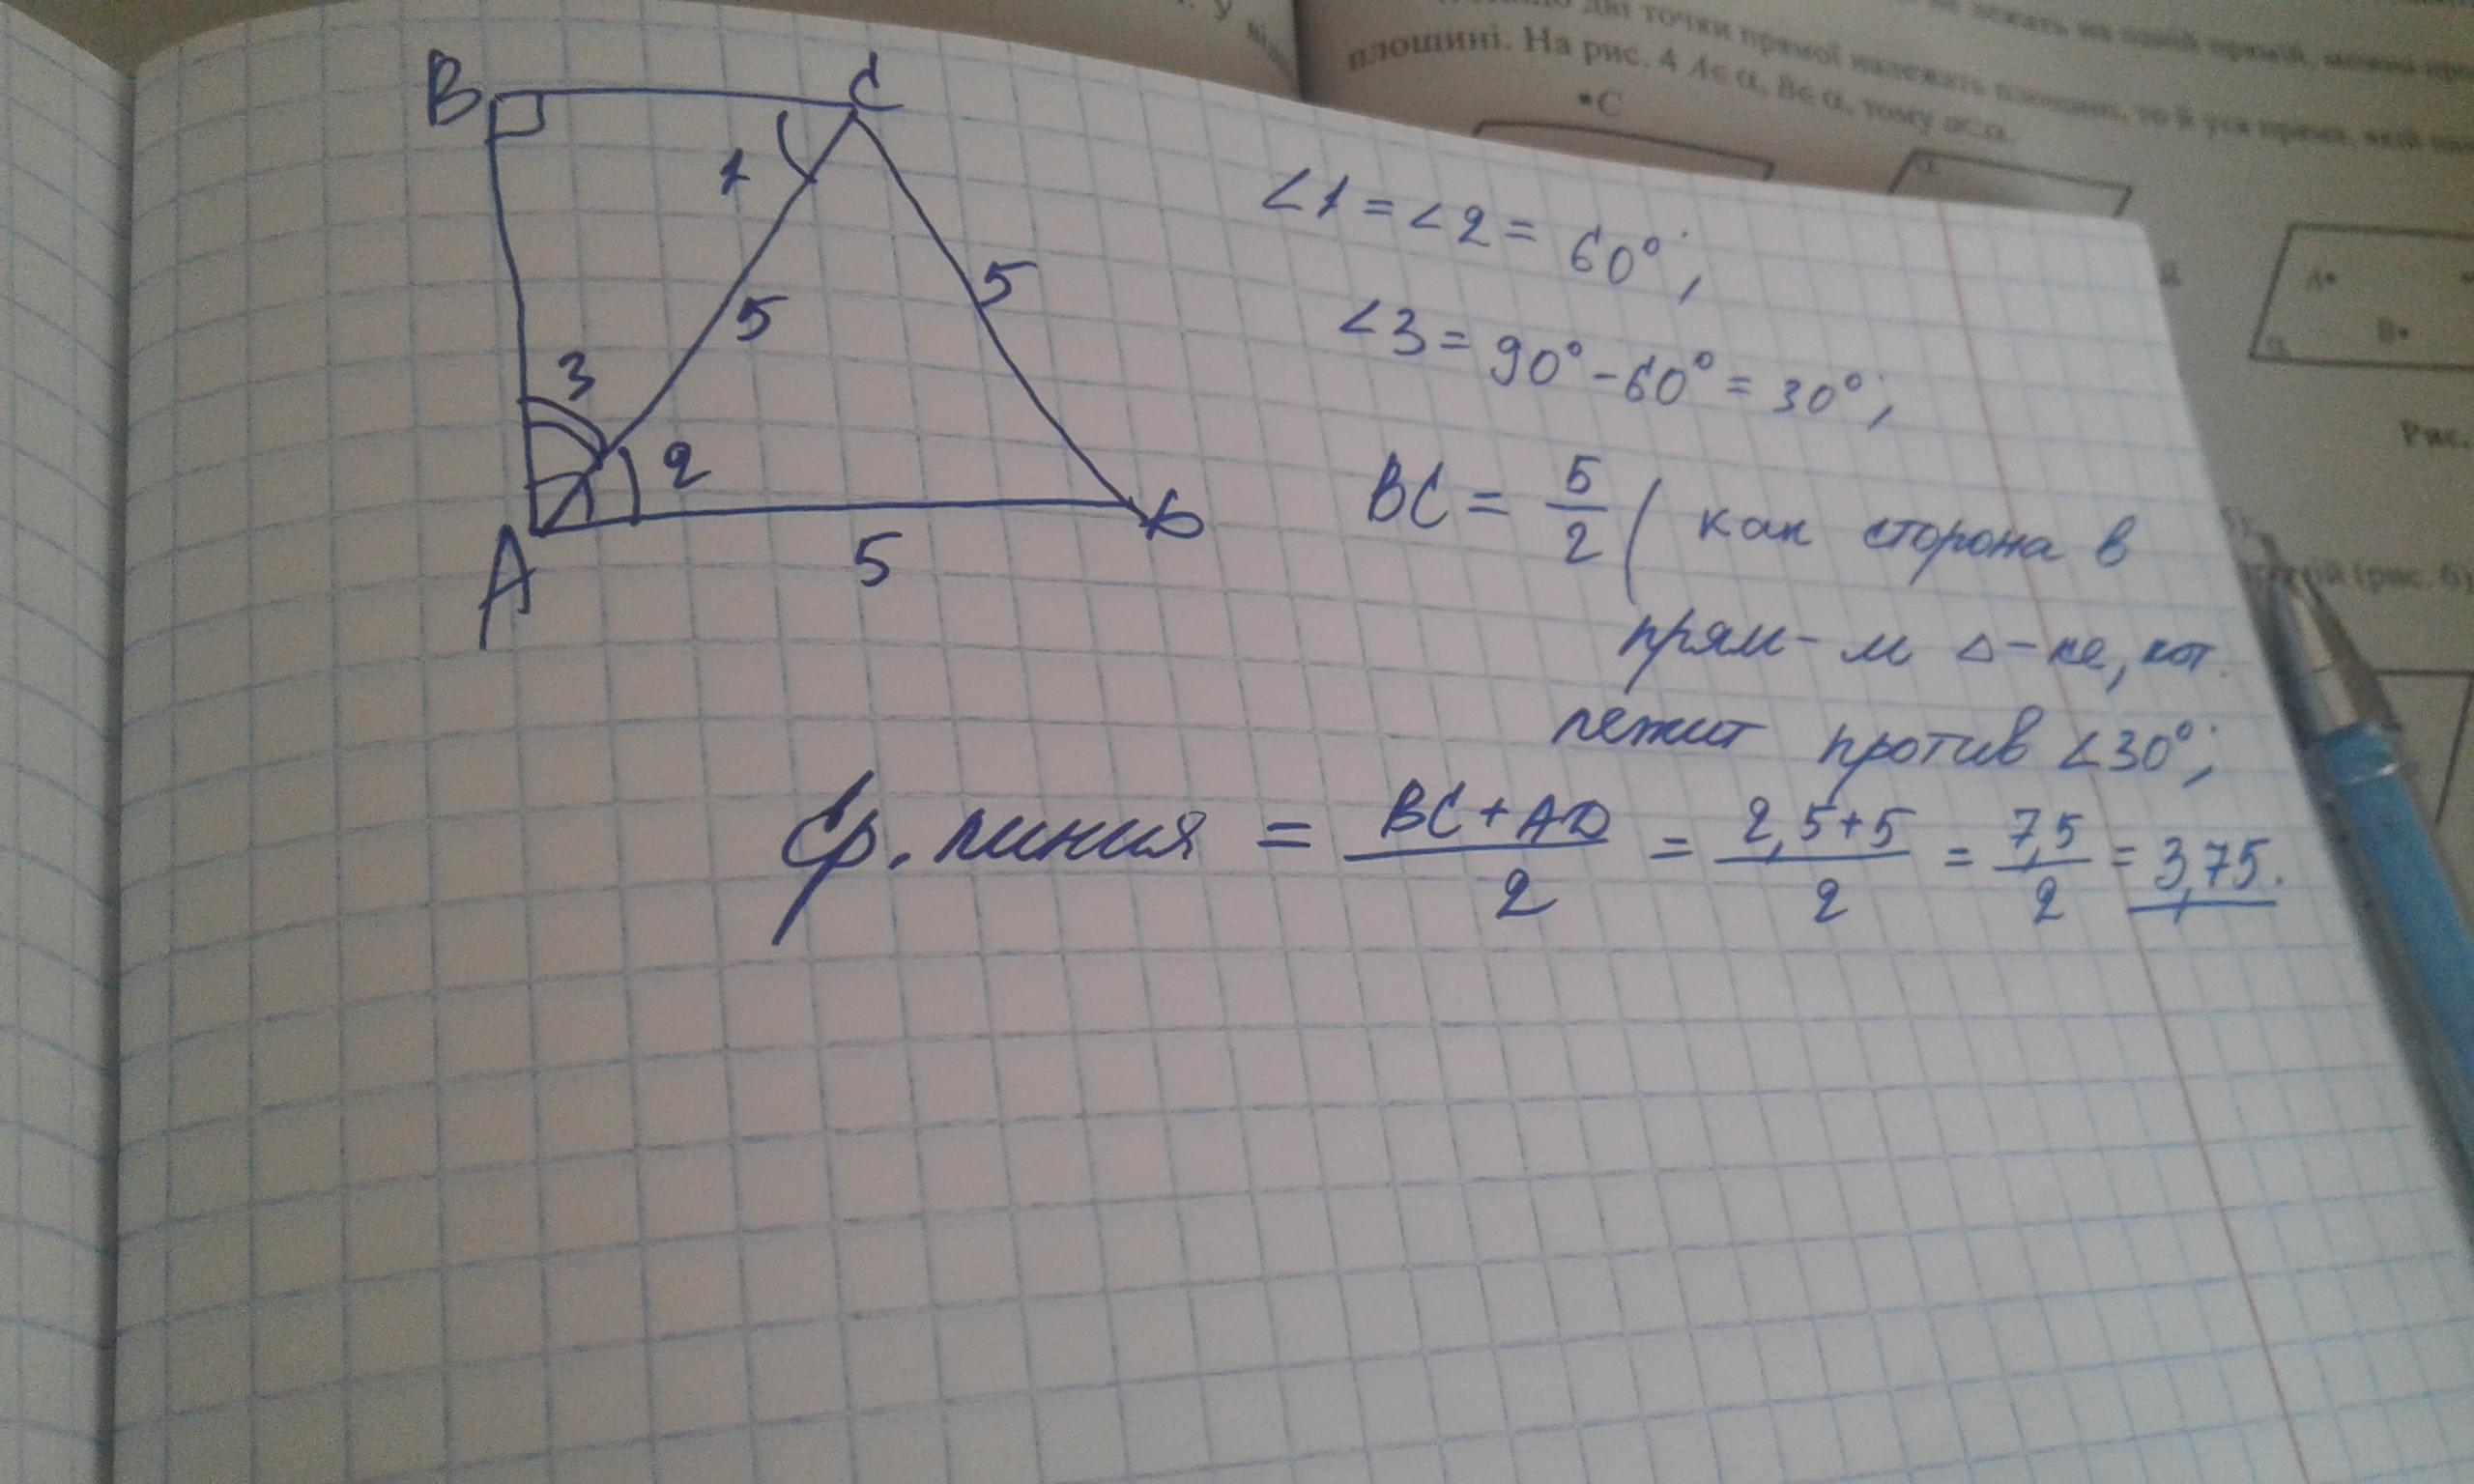 у
дві точки прямої належать площині, то й уся пряма,
площині. На рис. 4 A∈α, B∈α, тому a⊂α.
•C
α
A•
B•
α
Рис.
(рис. 6)
B
C
1
5
5
3
2
A
5
D
∠1 = ∠2 = 60°;
∠3 = 90° - 60° = 30°;
BC = 5/2 ( как сторона в
прям-м △-ке, кот.
лежит против ∠30°;
Ср. линия = BC+AD/2 = 2,5+5/2 = 7,5/2 = 3,75.